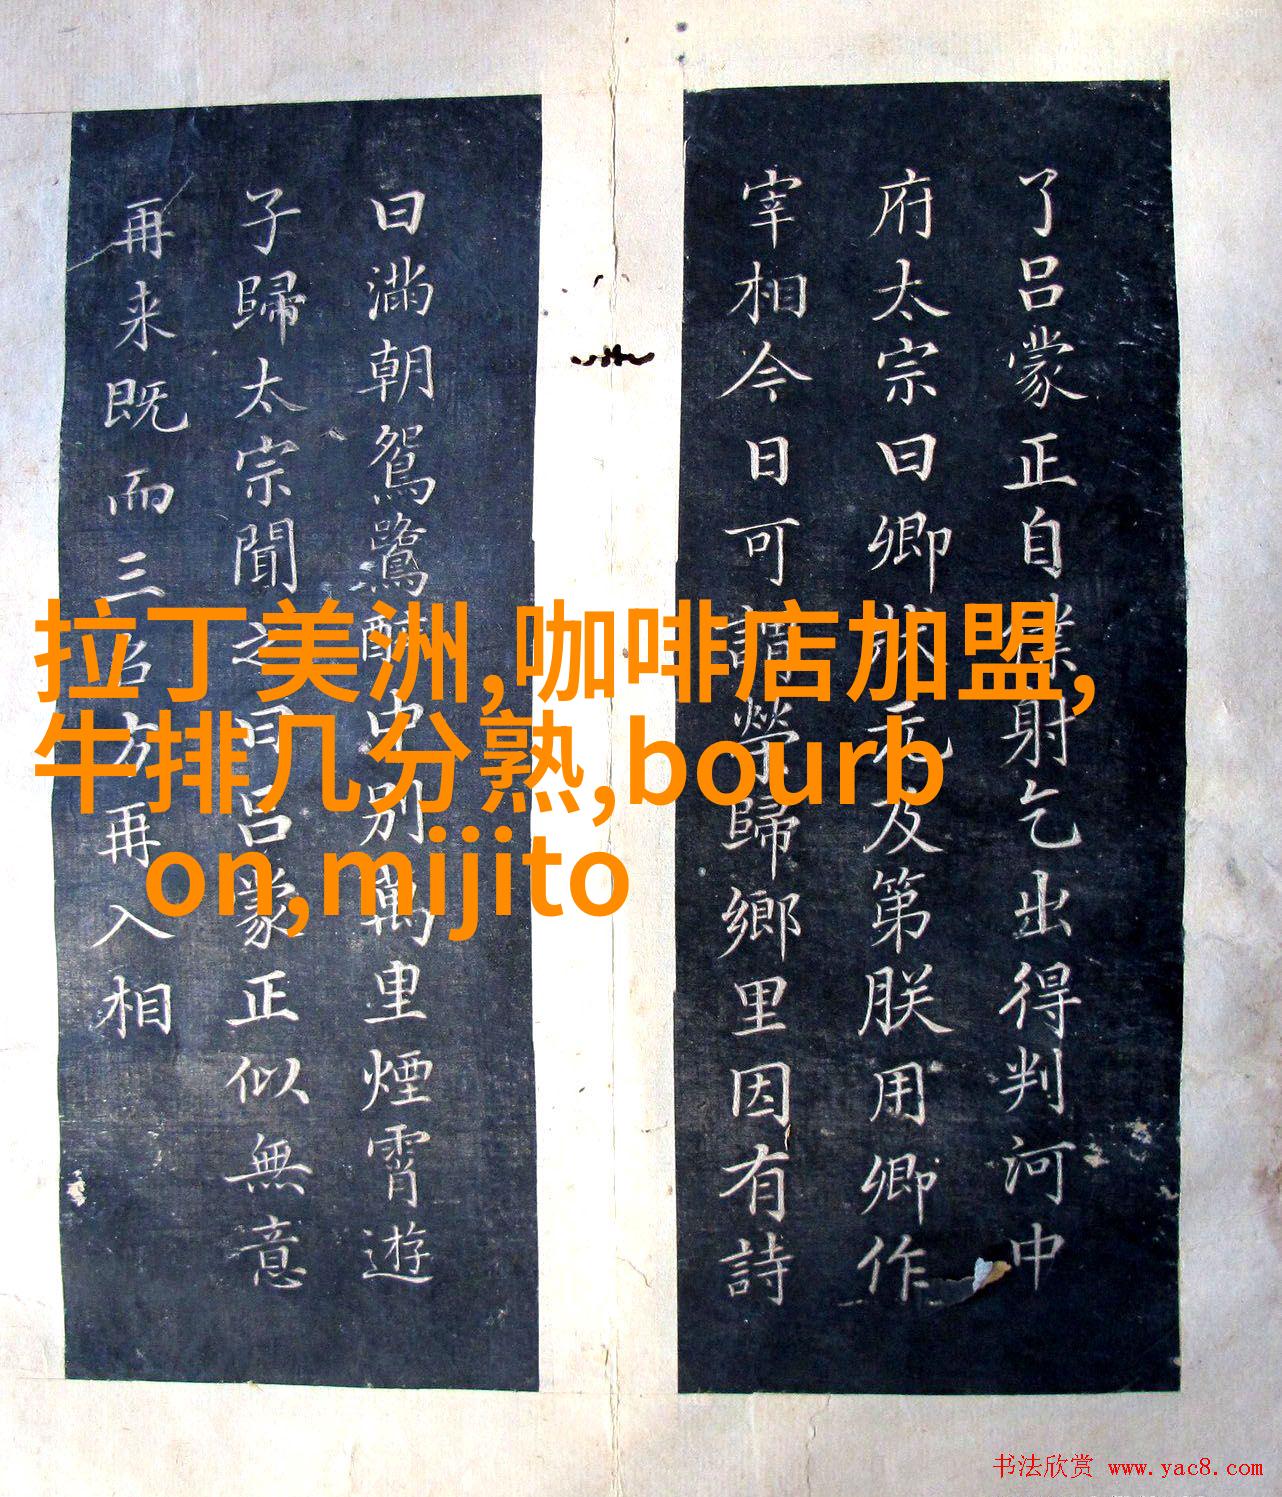 了吕蒙正自僕射乞出得判河中
府太宗曰卿状元及第朕用卿作
宰相今日可謂榮歸鄉里因有詩
曰滿朝鴛鷺醉中别萬里煙霄遊
子歸太宗聞之曰吕蒙正似無意
再来既而三召方再入相
拉丁美洲,咖啡店加盟,
牛排几分熟,bourb
on,mijito
书法欣赏 www.yac8.com